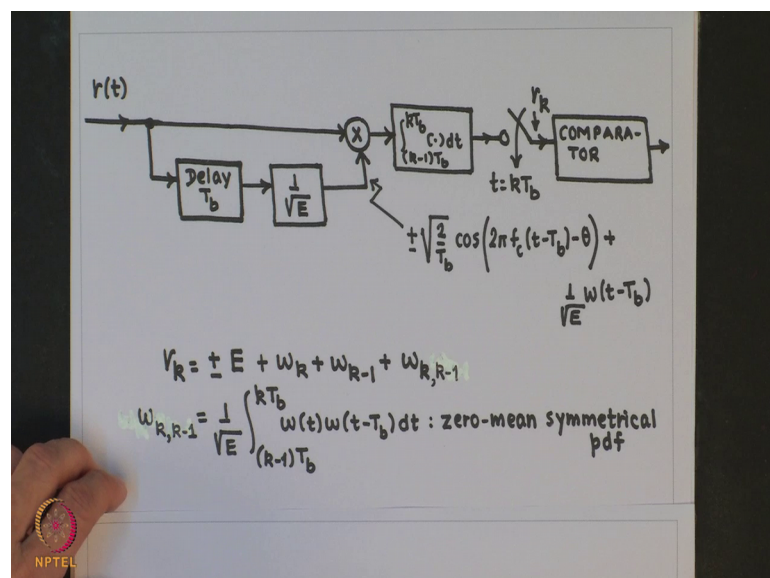 r(t)
Delay T_b
1/√E
X
∫_{(k-1)T_b}^{kT_b} (·)dt
t=kT_b
r_k
COMPARA-
TOR
± √(2/T_b) cos(2πf_c(t-T_b)-θ) +
1/√E w(t-T_b)
r_k = ± E + w_k + w_{k-1} + w_{k,k-1}
w_{k,k-1} = 1/√E ∫_{(k-1)T_b}^{kT_b} w(t)w(t-T_b)dt : zero-mean symmetrical
pdf
NPTEL